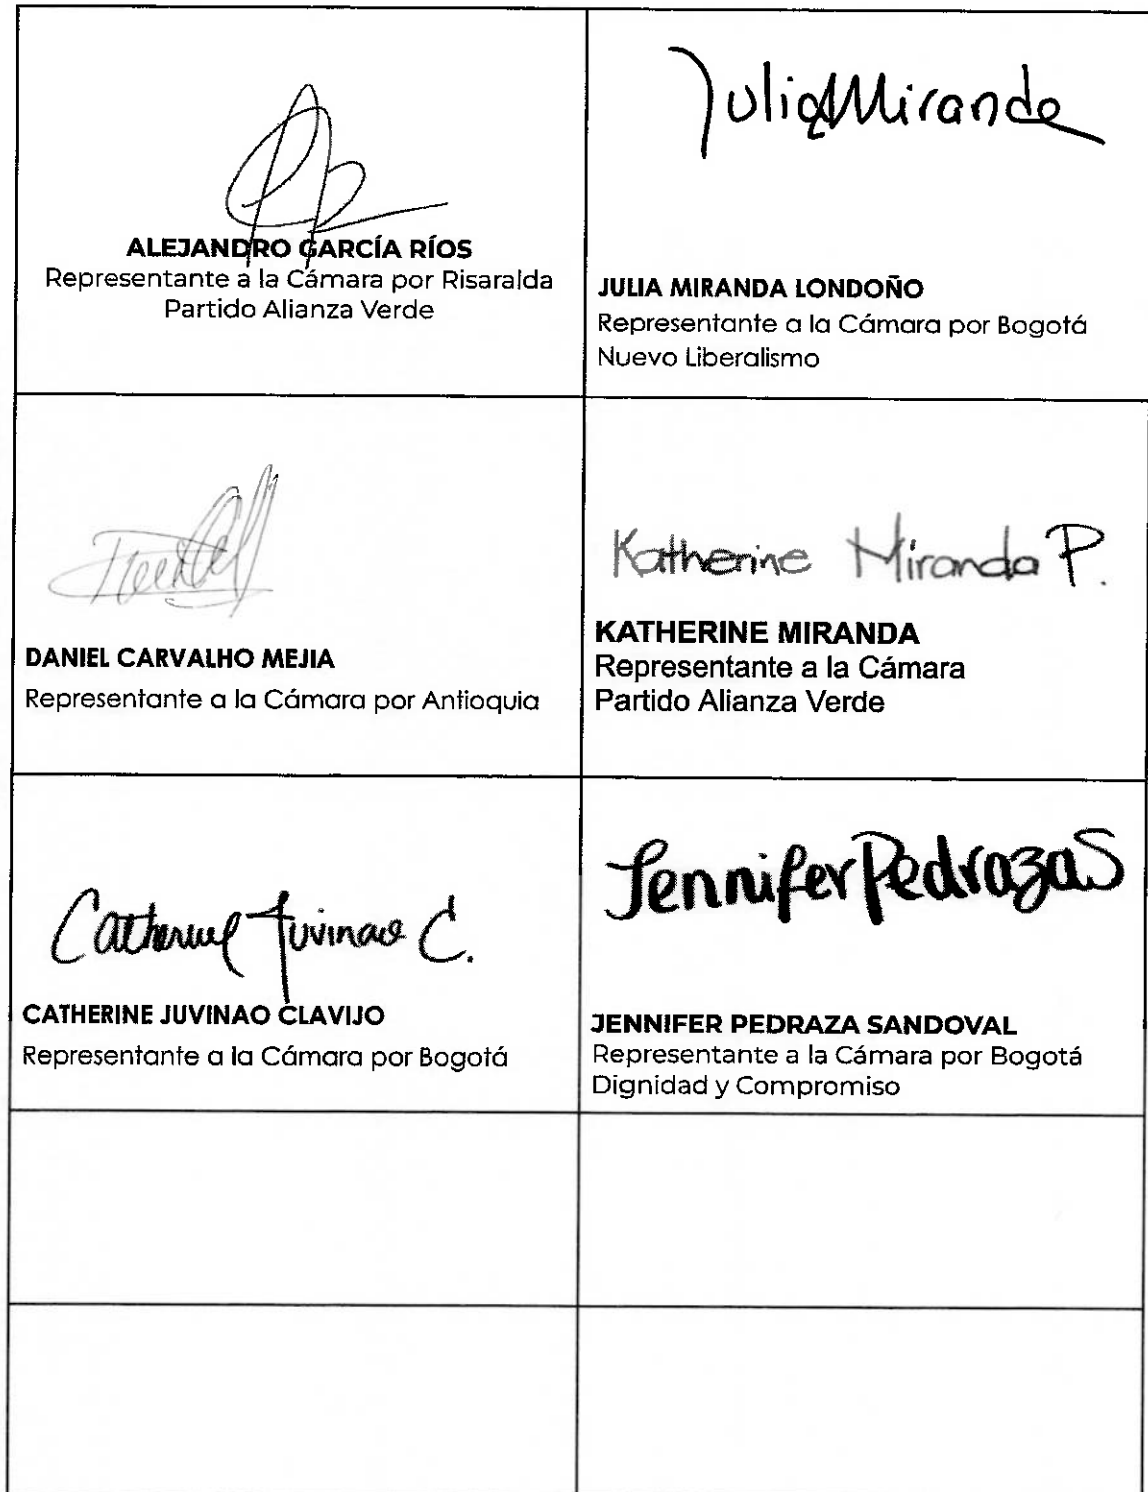 ALEJANDRO GARCÍA RÍOS
Representante a la Cámara por Risaralda
Partido Alianza Verde
JuliaMiranda
JULIA MIRANDA LONDOÑO
Representante a la Cámara por Bogotá
Nuevo Liberalismo
DANIEL CARVALHO MEJIA
Representante a la Cámara por Antioquia
Katherine Miranda P.
KATHERINE MIRANDA
Representante a la Cámara
Partido Alianza Verde
Catherine Juvinao C.
CATHERINE JUVINAO CLAVIJO
Representante a la Cámara por Bogotá
Jennifer Pedraza S
JENNIFER PEDRAZA SANDOVAL
Representante a la Cámara por Bogotá
Dignidad y Compromiso